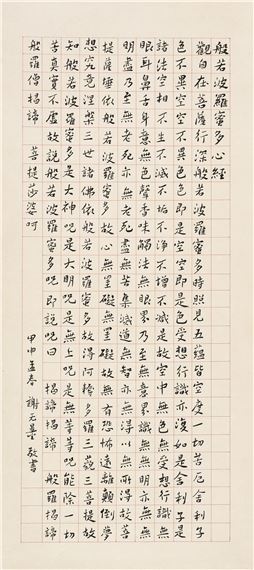 般若波羅蜜多心經
觀自在菩薩行深般若波羅蜜多時照見五蘊皆空度一切苦厄舍利子
色不異空空不異色色即是空空即是色受想行識亦復如是舍利子是
諸法空相不生不滅不垢不淨不增不減是故空中無色無受想行識無
眼耳鼻舌身意無色聲香味觸法無眼界乃至無意識界無無明亦無無
明盡乃至無老死亦無老死盡無苦集滅道無智亦無得以無所得故菩
提薩埵依般若波羅蜜多故心無罣礙無罣礙故無有恐怖遠離顛倒夢
想究竟涅槃三世諸佛依般若波羅蜜多故得阿耨多羅三藐三菩提故
知般若波羅蜜多是大神咒是大明咒是無上咒是無等等咒能除一切
苦真實不虛故說般若波羅蜜多咒即說咒曰 揭諦揭諦 般羅揭諦
般羅僧揭諦 菩提莎婆呵
甲申孟春 謝 敬書